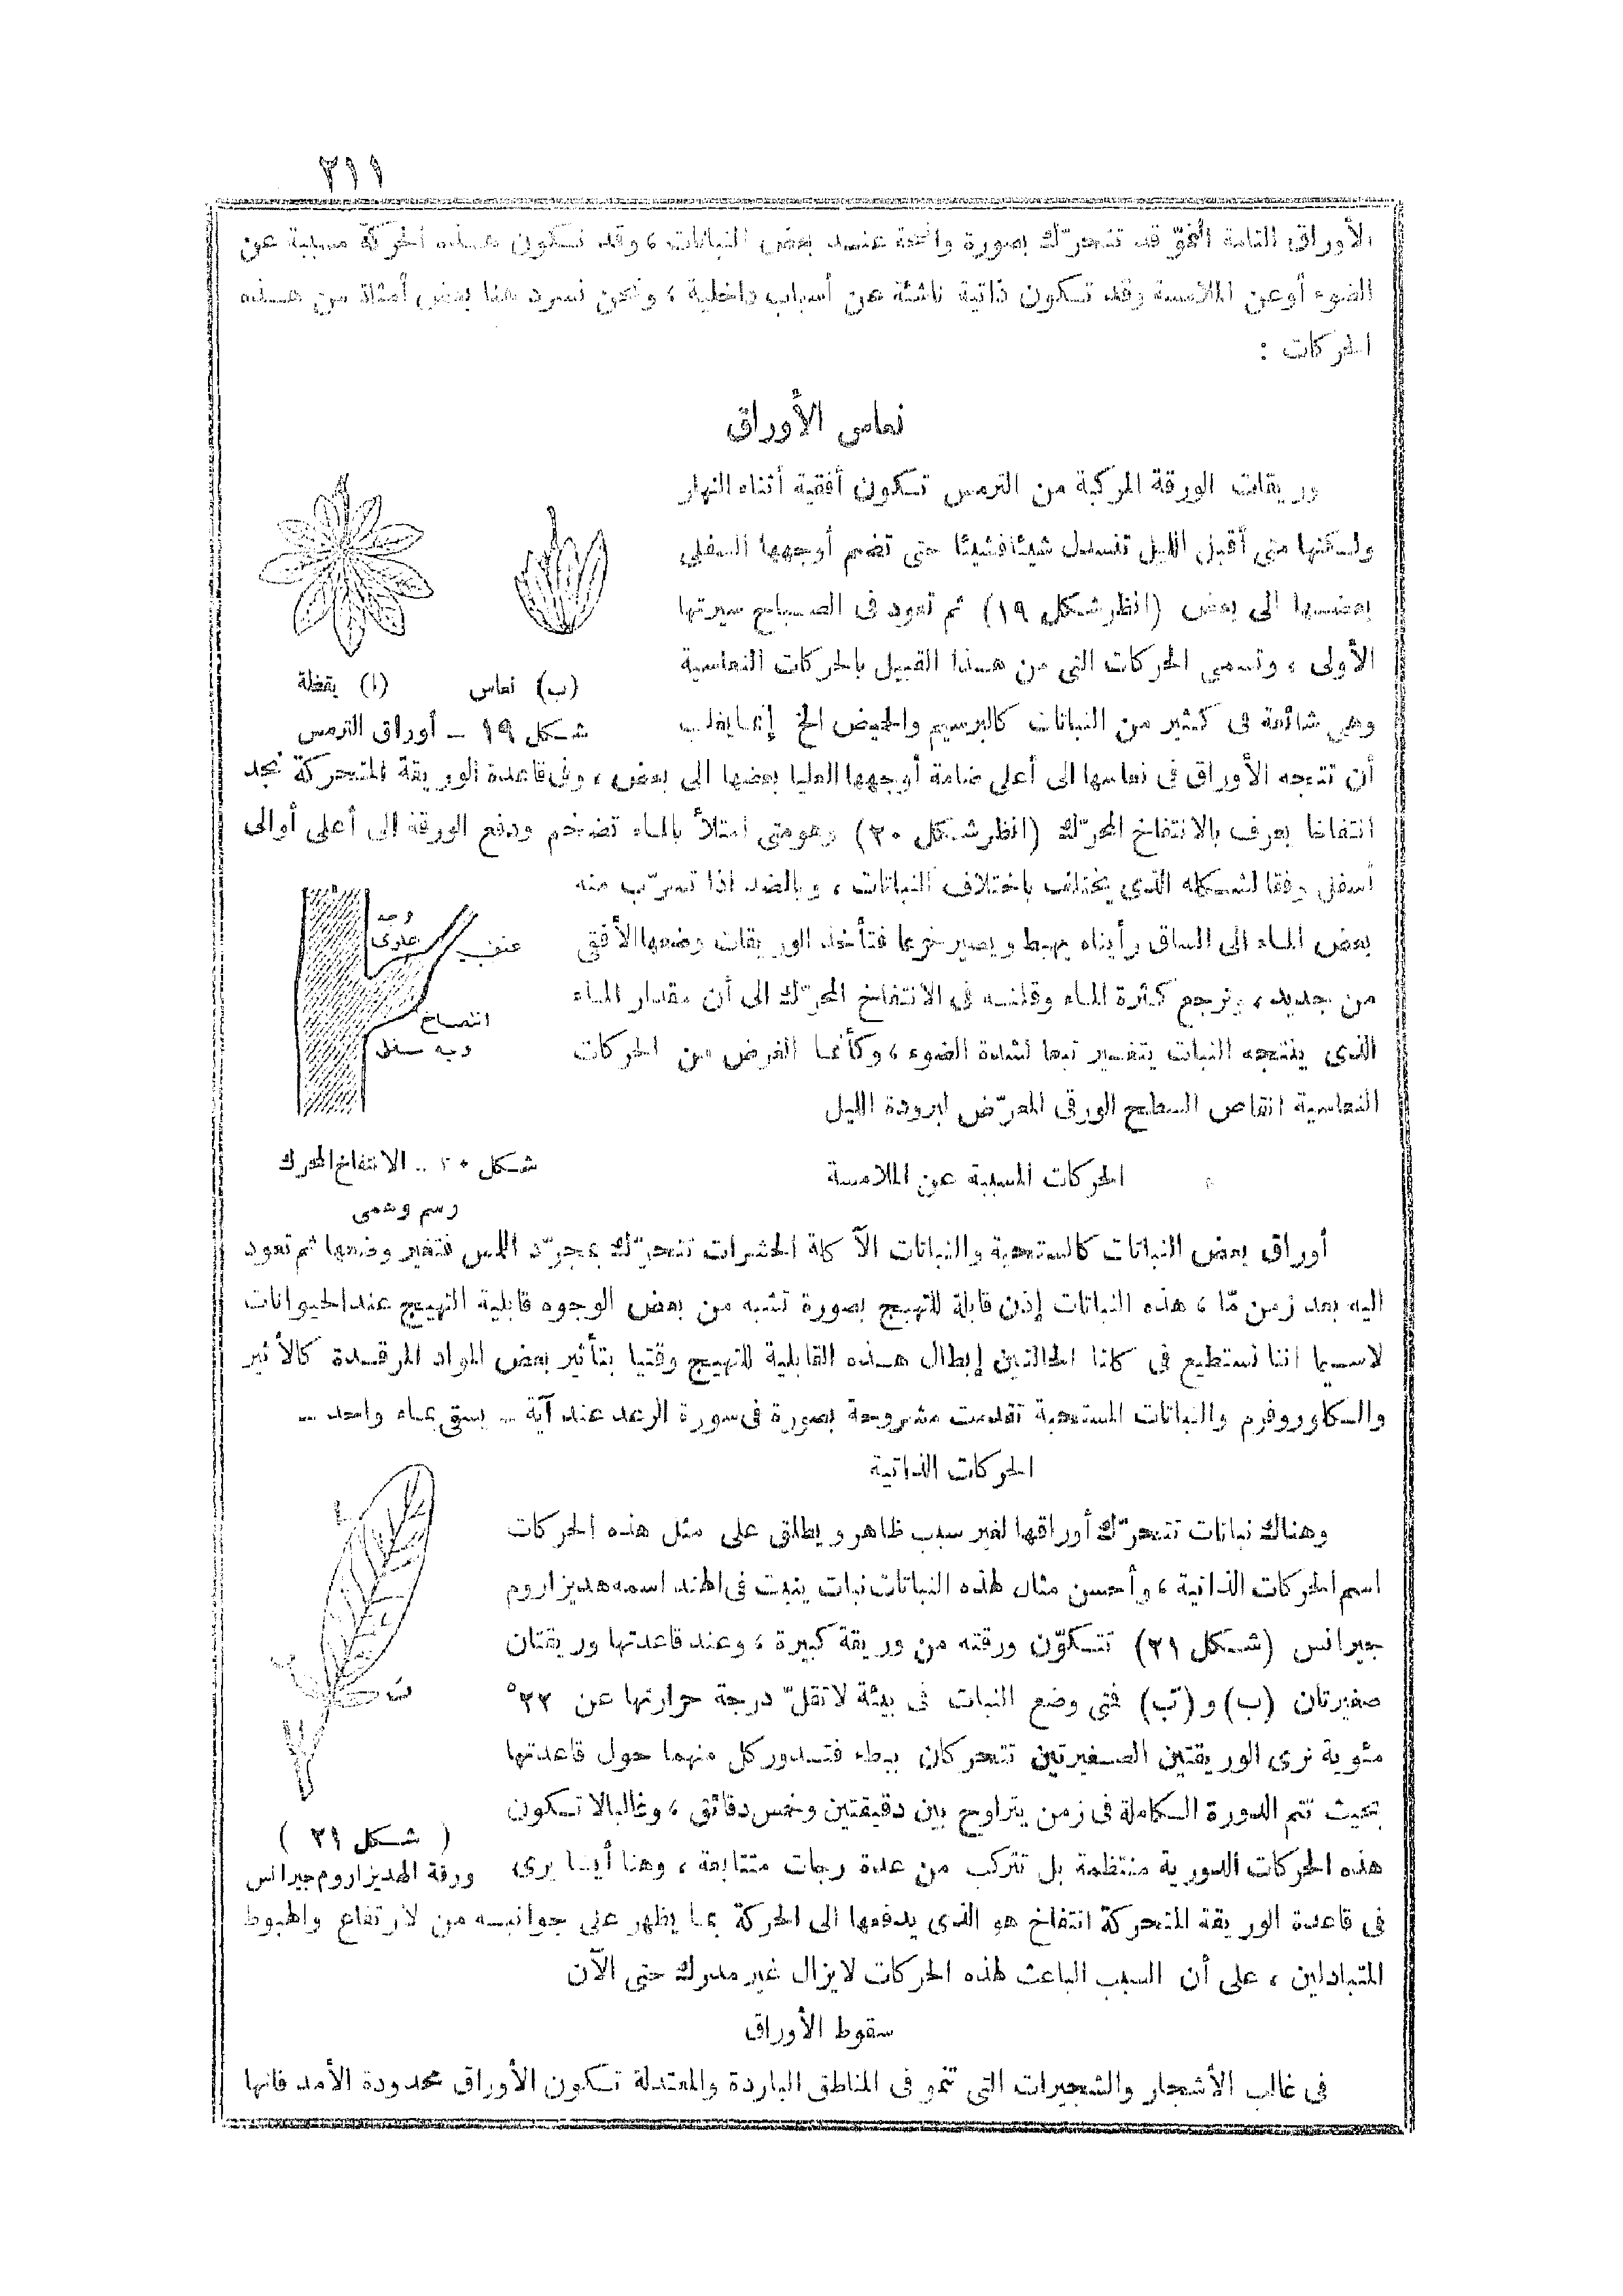 ٢١١
الأوراق التامة النموّ قد تتحرّك بصورة واضحة عند بعض النباتات ، وقد تكون هذه الحركة مسببة عن
الضوء أو عن الملامسة وقد تكون ذاتية ناشئة عن أسباب داخلية ، ونحن نسرد هنا بعض أمثلة من هذه
الحركات :
نعاس الأوراق
وريقات الورقة المركبة من الترمس تكون أفقية أثناء النهار
ولكنها متى أقبل الليل تنسدل شيئا فشيئا حتى تضم أوجهها السفلى
بعضها الى بعض (انظر شكل ١٩) ثم تعود فى الصباح سيرتها
الأولى ، وتسمى الحركات التى من هذا القبيل بالحركات النعاسية
وهى شائعة فى كثير من النباتات كالبرسيم والحميض الخ إنما يغلب
(ب) نعاس (ا) يقظة
شكل ١٩ - أوراق الترمس
أن تتجه الأوراق فى نعاسها الى أعلى ضامة أوجهها العليا بعضها الى بعض ، وفى قاعدة الوريقة المتحركة نجد
انتفاخا يعرف بالانتفاخ المحرّك (انظر شكل ٢٠) وهو متى امتلأ بالماء تضخم ودفع الورقة الى أعلى أو الى
أسفل وفقا لشكله الذى يختلف باختلاف النباتات ، وبالضد اذا تسرّب منه
بعض الماء الى الساق رأيناه يهبط ويصير فتأخذ الوريقات وضعها الأفقى
من جديد ، وترجع كثرة الماء وقلته فى الانتفاخ المحرّك الى أن مقدار الماء
الذى ينتجه النبات يتغير تبعا لشدة الضوء ، وكأنما الغرض من الحركات
النعاسية انقاص السطح الورقى المعرّض لبرودة الليل
وجه
علوى
عنف
انتفاخ
وجه سفلى
شكل ٢٠ .. الانتفاخ المحرك
رسم وهمى
الحركات المسببة عن الملامسة
أوراق بعض النباتات كالمستحية والنباتات الآكلة الحشرات تتحرّك بمجرّد اللمس فتغير وضعها ثم تعود
اليه بعد زمن مّا ، هذه النباتات إذن قابلة للتهيج بصورة تشبه من بعض الوجوه قابلية التهيج عند الحيوانات
لاسيما اننا نستطيع فى كلتا الحالتين إبطال هذه القابلية للتهيج وقتيا بتأثير بعض المواد المرقدة كالأثير
والكلوروفرم والنباتات المستحية تقدمت مشروحة بصورة فى سورة الرعد عند آية - يسقى بماء واحد -
الحركات الذاتية
وهناك نباتات تتحرّك أوراقها لغير سبب ظاهر ويطلق على مثل هذه الحركات
اسم الحركات الذاتية ، وأحسن مثال لهذه النباتات نبات ينبت فى الهند اسمه هديزاروم
جيرانس (شكل ٢١) تتكوّن ورقته من وريقة كبيرة ، وعند قاعدتها وريقتان
صغيرتان (ب) و (تَب) فتى وضع النبات فى بيئة لا تقلّ درجة حرارتها عن ٢٢°
مئوية نرى الوريقتين الصغيرتين تتحركان ببطء فتدور كل منهما حول قاعدتها
بحيث تتم الدورة الكاملة فى زمن يتراوح بين دقيقتين وخمس دقائق ، وغالبا لا تكون
هذه الحركات الدورية منتظمة بل تتركب من عدة رجات متتابعة ، وهنا أيضا يرى
ت
( شكل ٢١ )
ورقة الهديزاروم جيرانس
فى قاعدة الوريقة المتحركة انتفاخ هو الذى يدفعها الى الحركة بما يظهر على جوانبه من لارتفاع والهبوط
المتبادلين ، على أن السبب الباعث لهذه الحركات لا يزال غير مدرك حتى الآن
سقوط الأوراق
فى غالب الأشجار والشجيرات التى تنمو فى المناطق الباردة والمعتدلة تكون الأوراق محدودة الأمد فانها